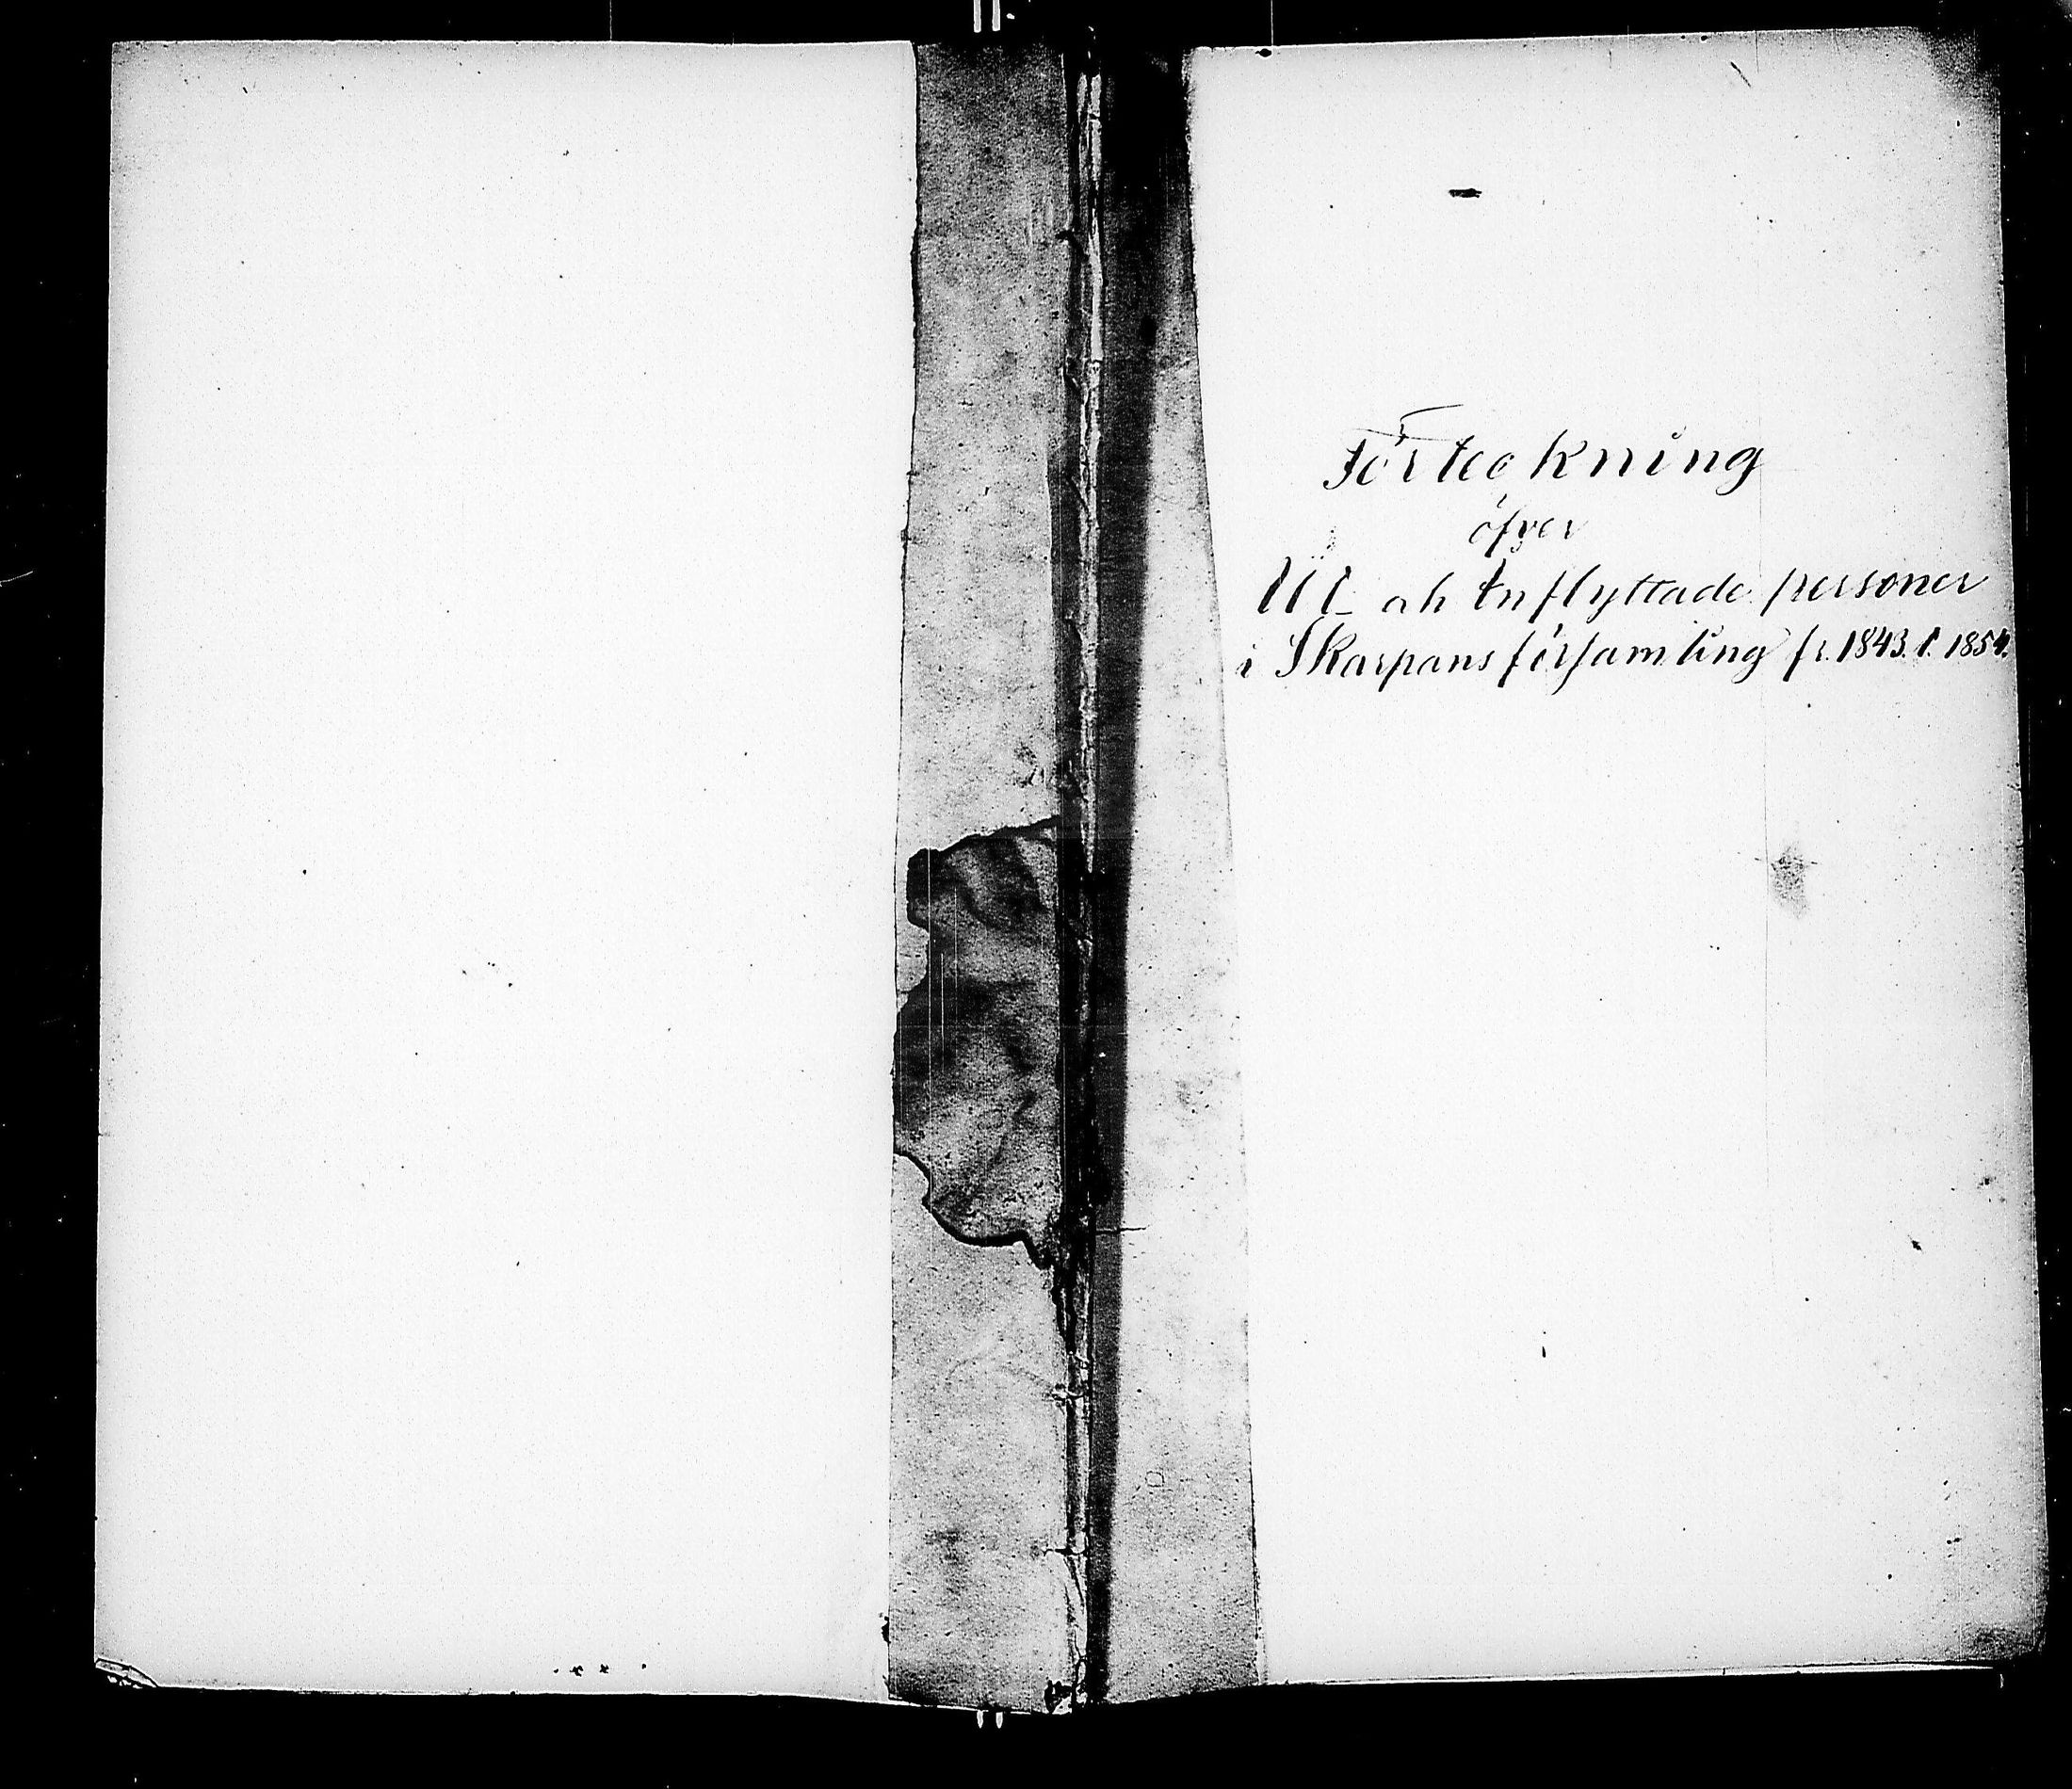 Förteckning
öfver
Ut och Inflyttade personer
i Skarpans församling fr. 1843. t. 1854.